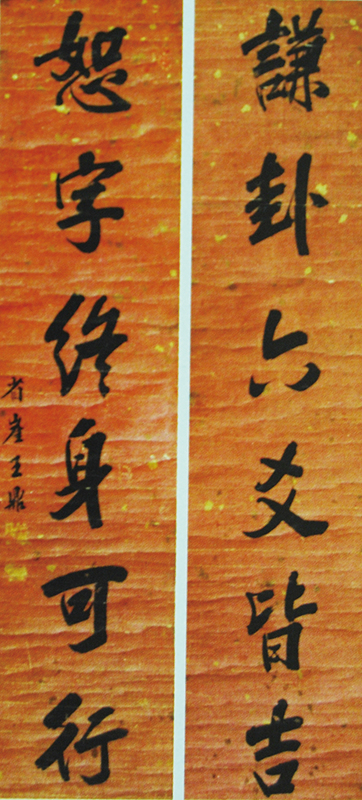 謙卦六爻皆吉
恕字終身可行
省崖王鼎